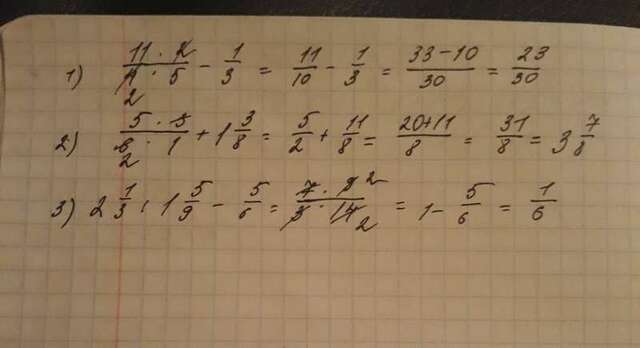 1) 11 · 2 / 4 2 · 5 - 1/3 = 11/10 - 1/3 = 33-10/30 = 23/30
2) 5 · 3 / 6 2 · 1 + 1 3/8 = 5/2 + 11/8 = 20+11/8 = 31/8 = 3 7/8
3) 2 1/3 : 1 5/9 - 5/6 = 7 · 9 2 / 3 · 14 2 = 1 - 5/6 = 1/6